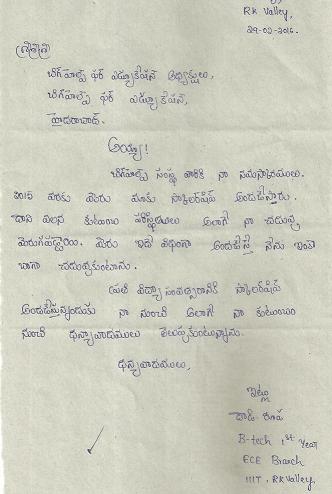 RK Valley,
29-02-2016.
శ్రీశ్రీశ్రీ
బిగ్‌హెల్ప్ ఫర్ ఎడ్యుకేషన్ అధ్యక్షులు,
బిగ్‌హెల్ప్ ఫర్ ఎడ్యుకేషన్,
హైదరాబాద్.
అయ్యా!
బిగ్‌హెల్ప్ సంస్థ వారికి నా నమస్కారములు.
2015 వరకు మీరు మాకు స్కాలర్‌షిప్ అందజేస్తారు.
దాని వలన కుటుంబ పరిస్థితులు అలాగే నా చదువు
మెరుగుపడ్డాయి. మీరు ఇదే విధంగా అందజేస్తే నేను ఇంకా
బాగా చదువుకుంటాను.
ప్రతి విద్యా సంవత్సరానికి స్కాలర్‌షిప్
అందజేస్తున్నందుకు నా నుంచి అలాగే నా కుటుంబం
నుంచి ధన్యవాదములు తెలుపుకుంటున్నాను.
ధన్యవాదములు,
ఇట్లు
దాడి రూప
B-tech 1st Year
ECE Branch
IIIT, RK Valley.